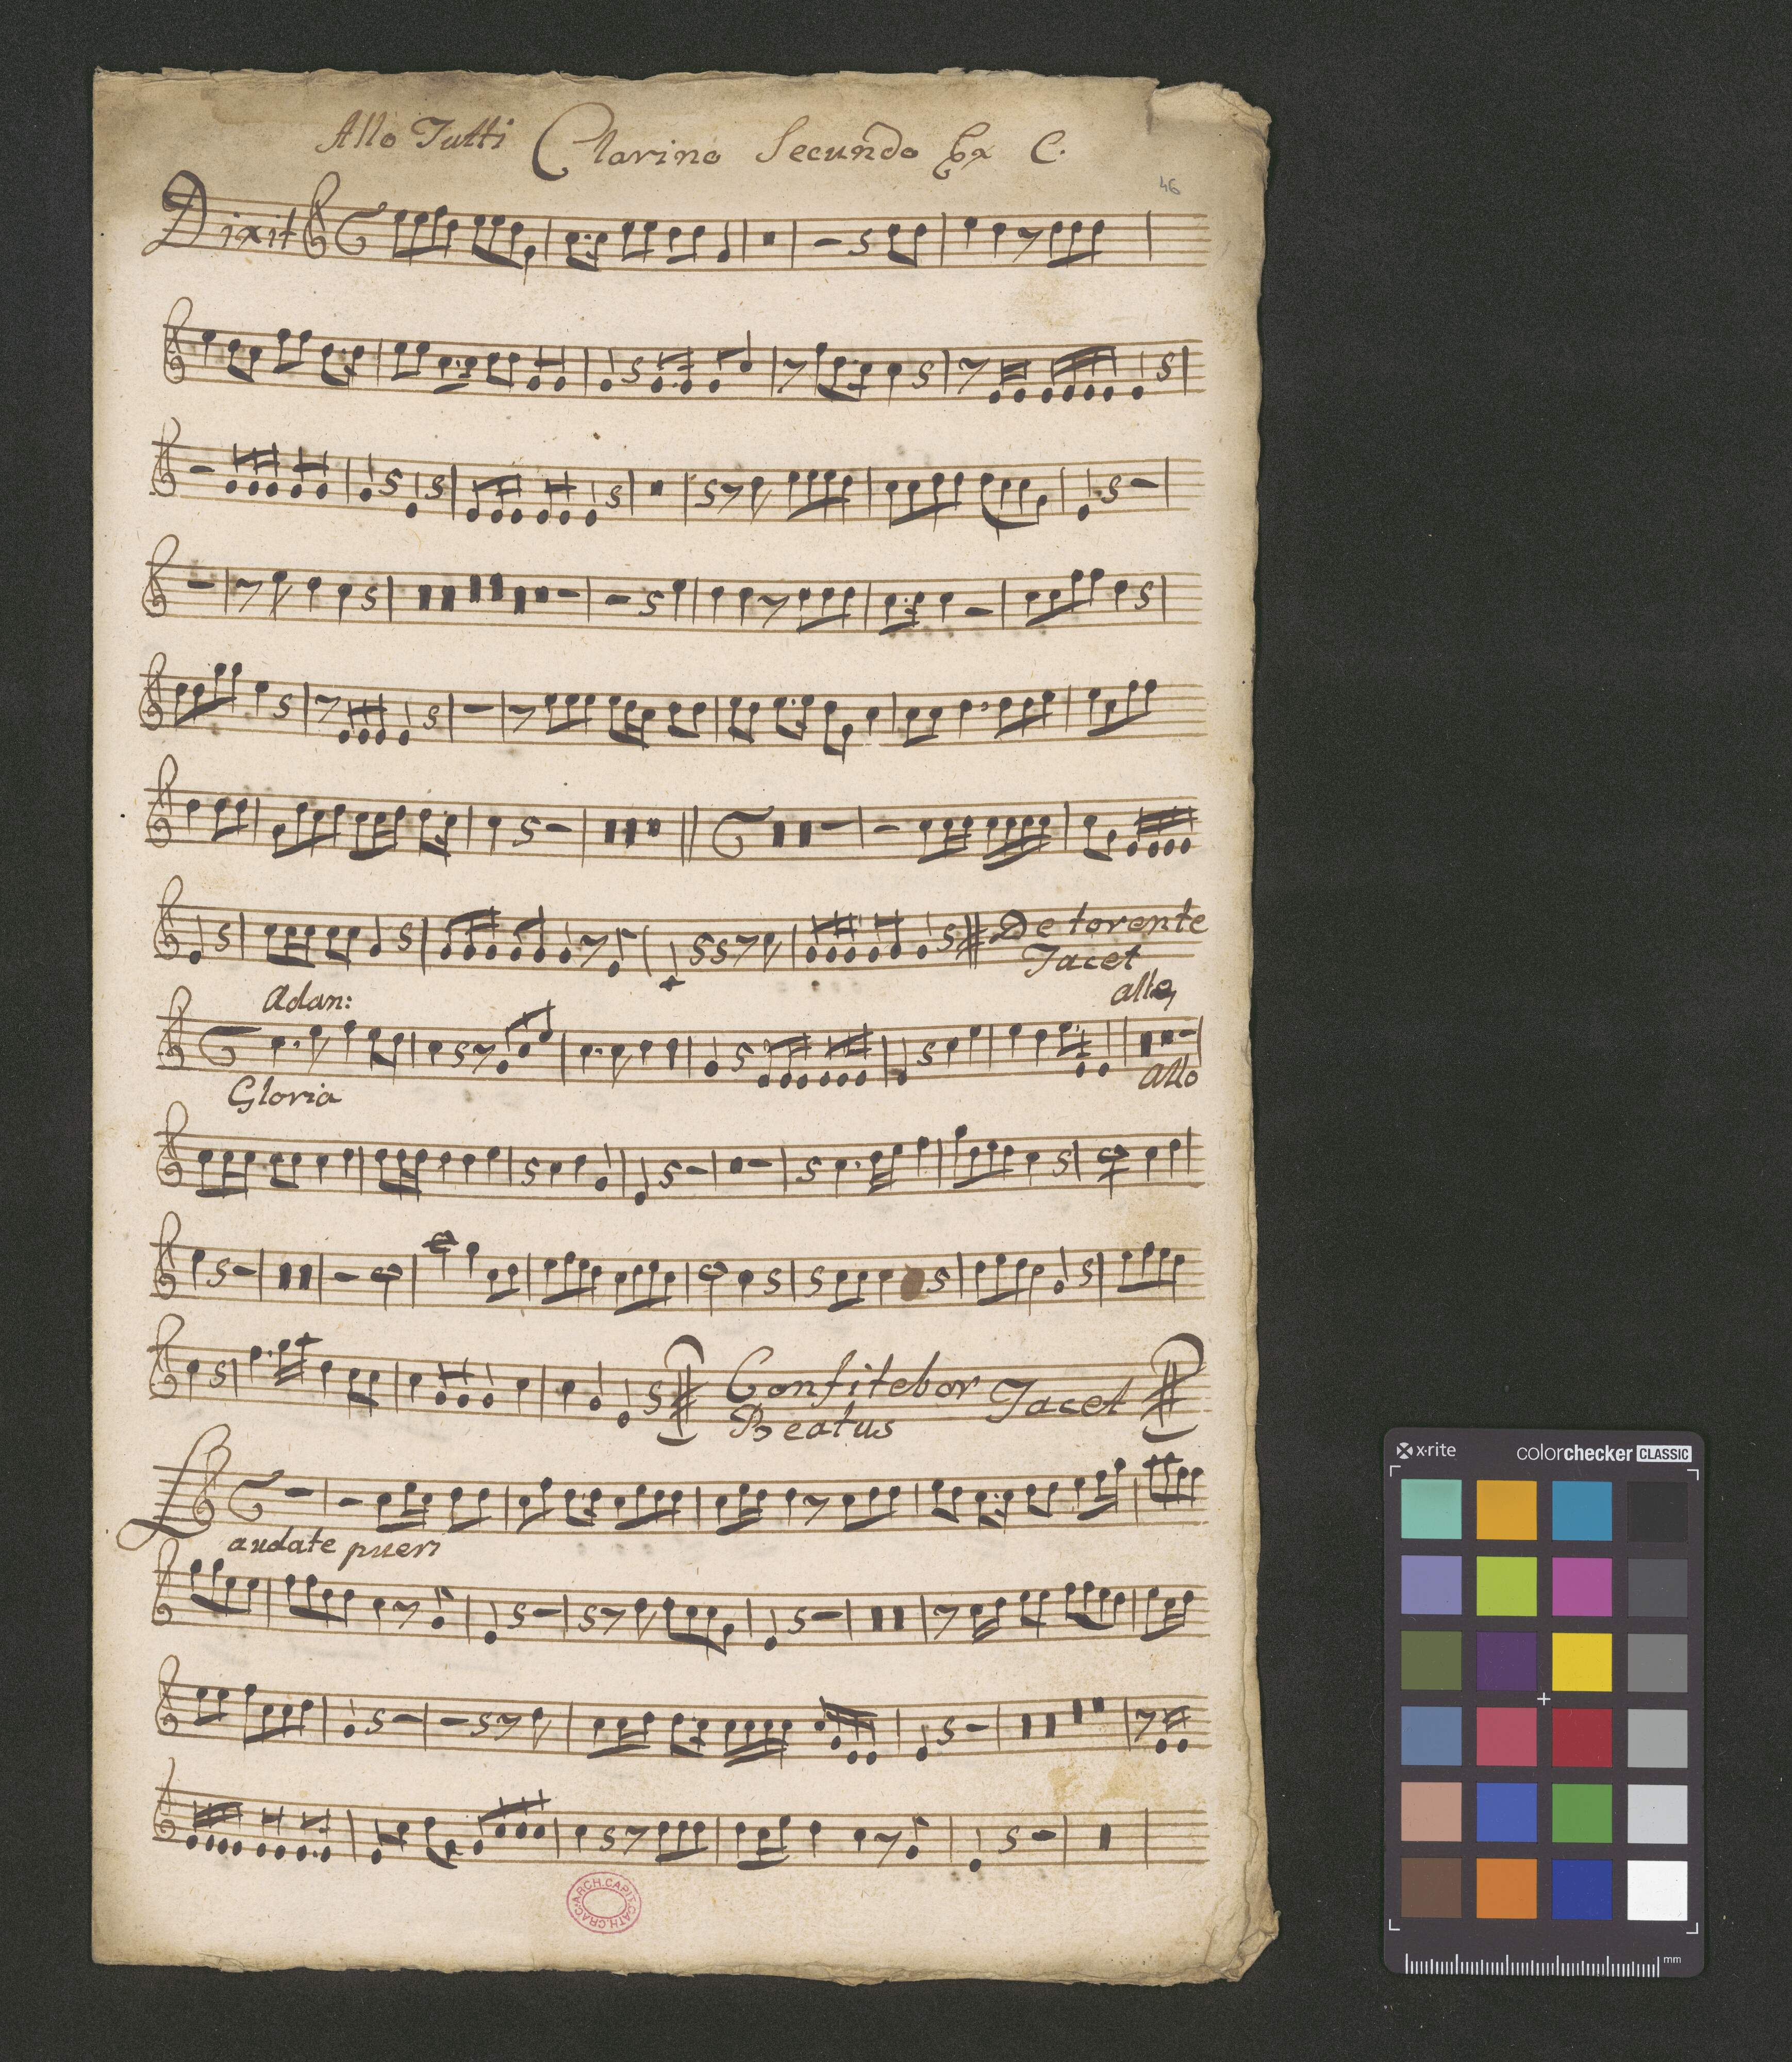 Allo Tutti Clarino Secundo Ex C.
46
Dixit
De torente
Tacet
Adan:
allo
Gloria
Allo
Confitebor Tacet
Beatus
Laudate pueri
ARCH.CAPIT.CATH.CRAC.
x-rite
colorchecker CLASSIC
mm